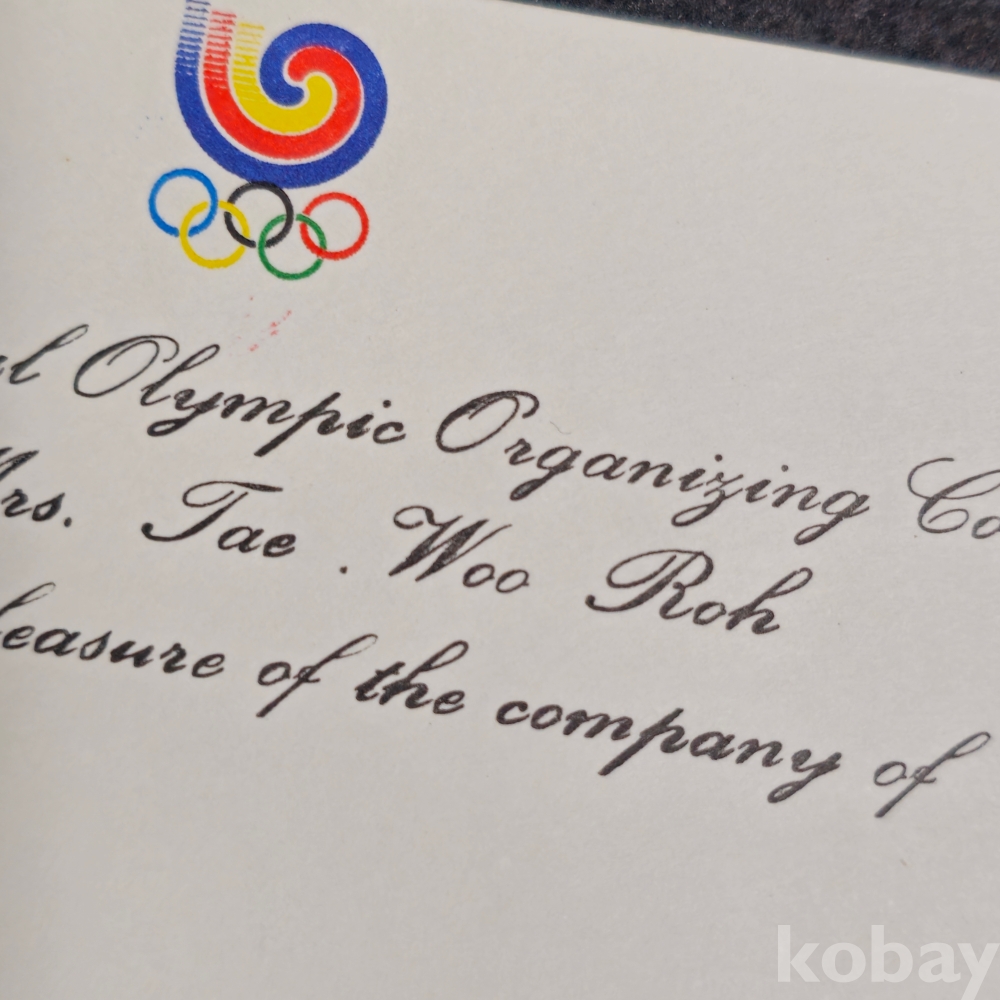 Olympic Organizing Co
Mrs. Tae . Woo Roh
leasure of the company of
kobay